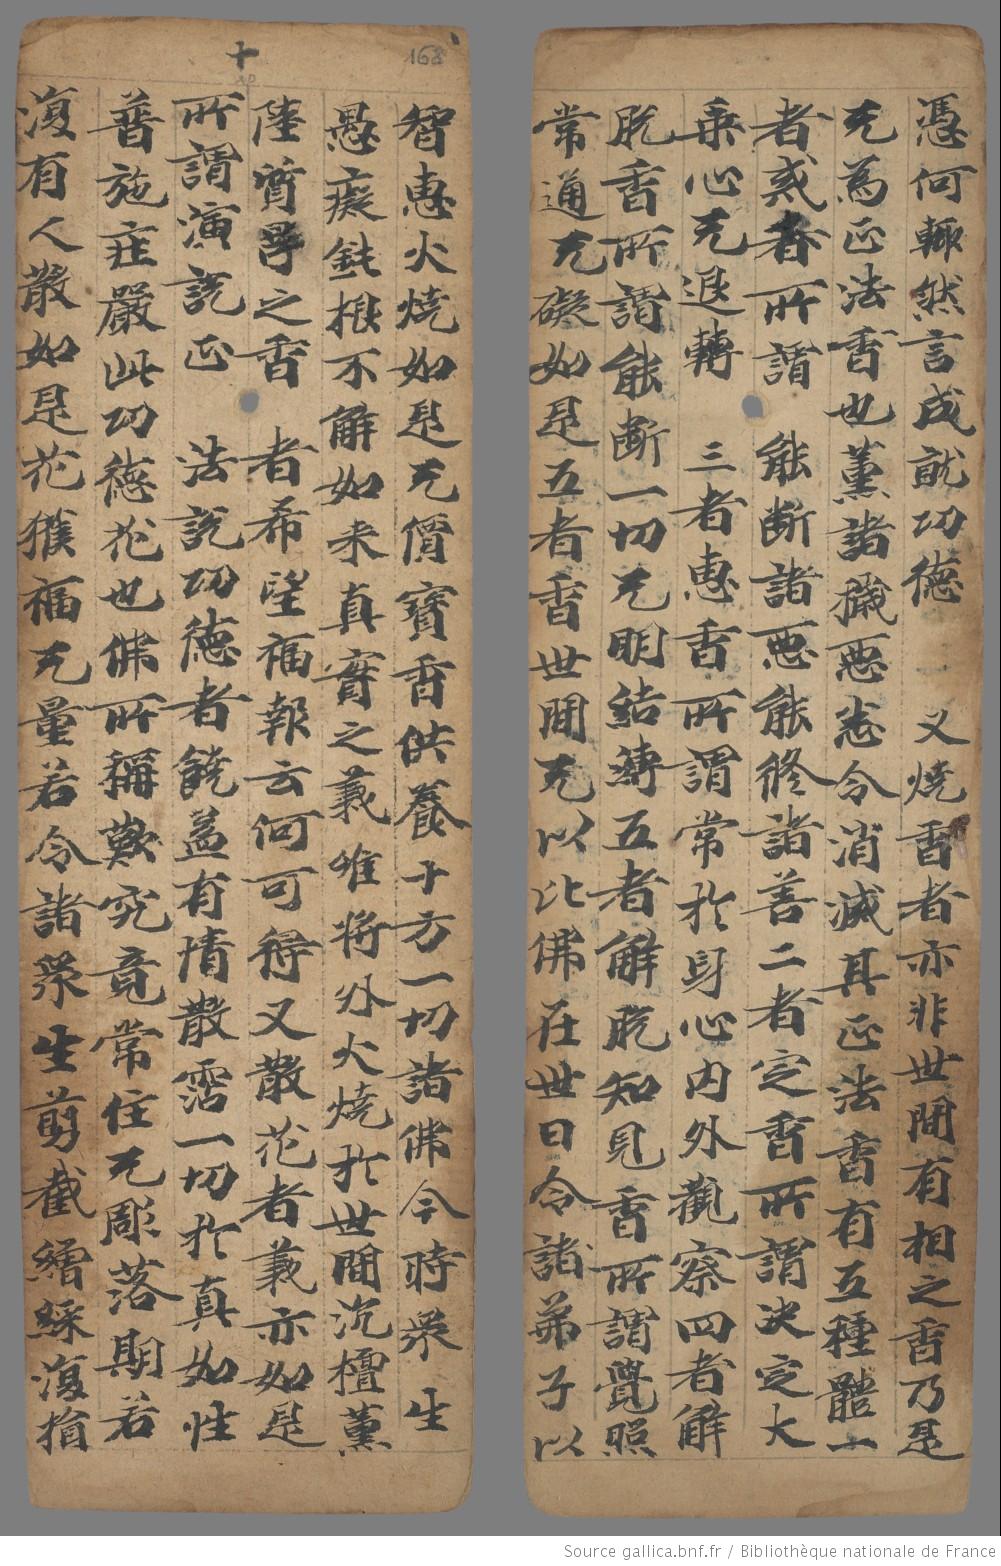 憑何輒然言成就功德 一 又燒香者亦非世間有相之香乃是
无為正法香也薰諸穢惡悉令消滅其正法香有五種體一
者戒香者所謂 能断諸惡能修諸善二者定香所謂决定大
乘心无退轉 三者惠香所謂常於身心内外觀察四者解
脱香所謂能断一切无明結縛五者解脱知見香所謂覺照
常通无礙如是五者香世間无以比佛在世日令諸弟子以
十
168
智惠火燒如是无價寶香供養十方一切諸佛今時眾生
愚癡鈍根不解如来真實之義唯将外火燒於世間沉檀薰
陸質㝵之香 者希望福報云何可得又散花者義亦如是
所謂演説正 法説功德者饒益有情散霑一切於真如性
普施莊嚴此功德花也佛所稱歎究竟常住无彫落期若
復有人散如是花獲福无量若令諸眾生剪截繒綵復損
Source gallica.bnf.fr / Bibliothèque nationale de France